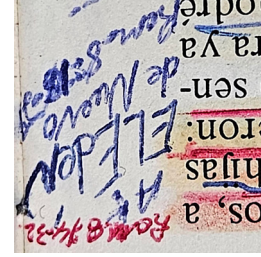 os, a
hijas
eron:
sen-
ra ya
podré
Rom 8 14-32
A
EL Eden
de Nuevo